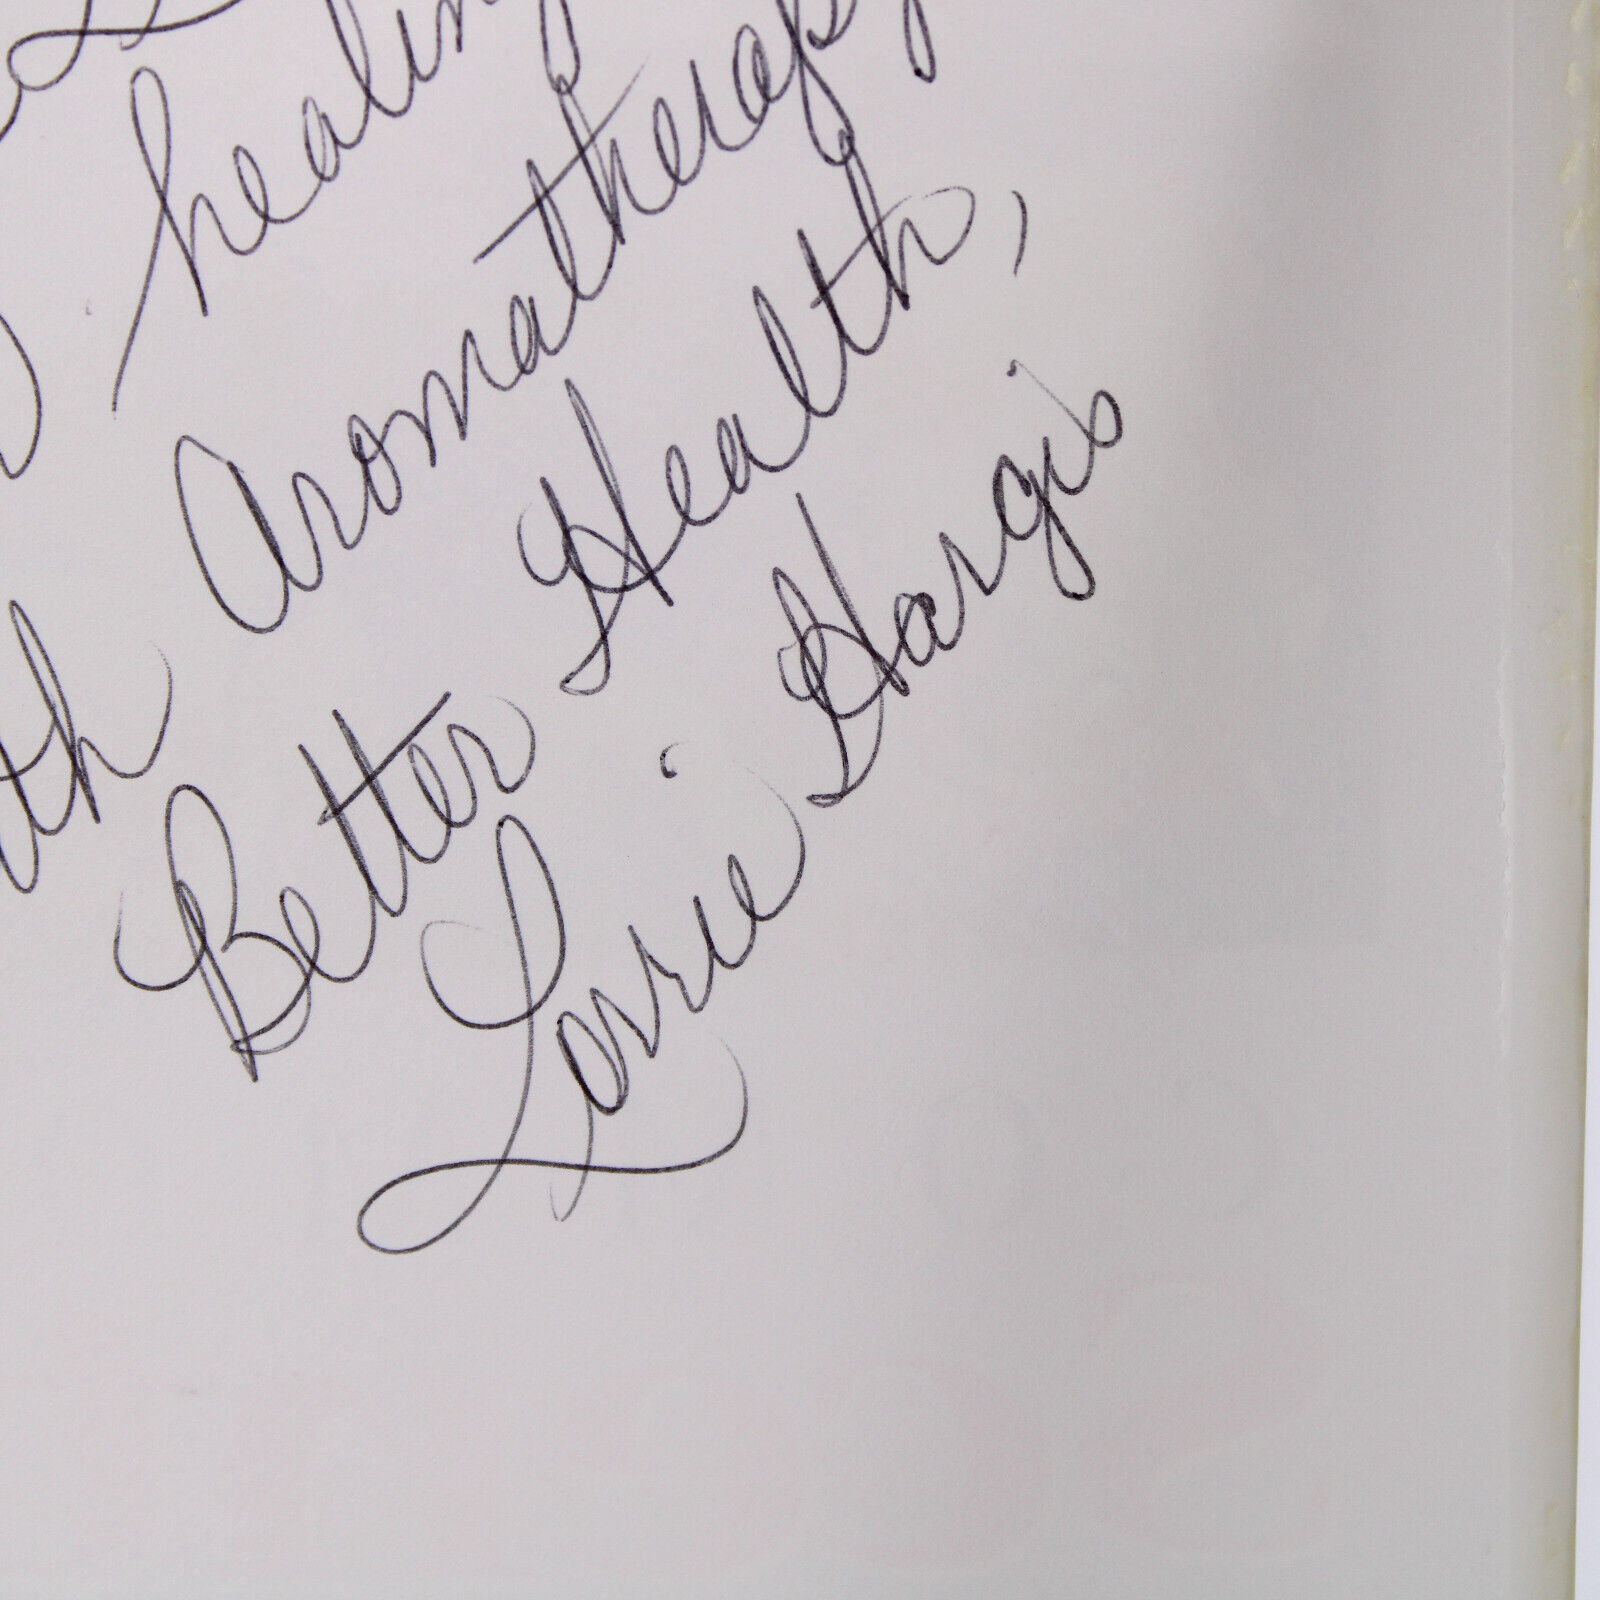 healing
th Aromatherapy
Better Health,
Lorrie Hargis